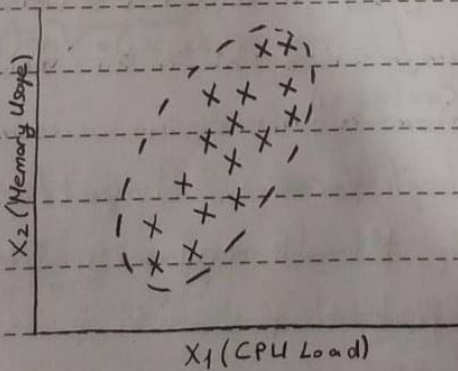 X2 (Memory Usage)
X1 (CPU Load)